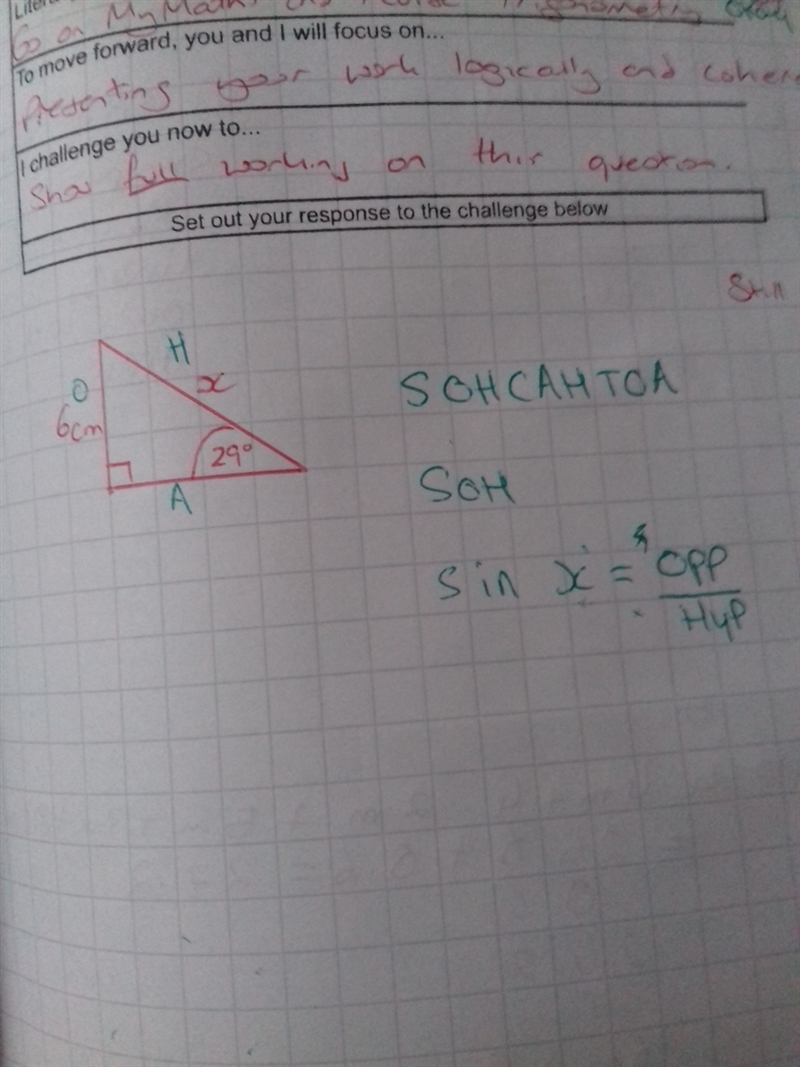 Go on MyMaths and
To move forward, you and I will focus on...
Presenting your work logically and
I challenge you now to...
Show full working on this question.
Set out your response to the challenge below
Still
H
O
x
6cm
29°
A
SOHCAHTOA
SOH
sin x = Opp
Hyp